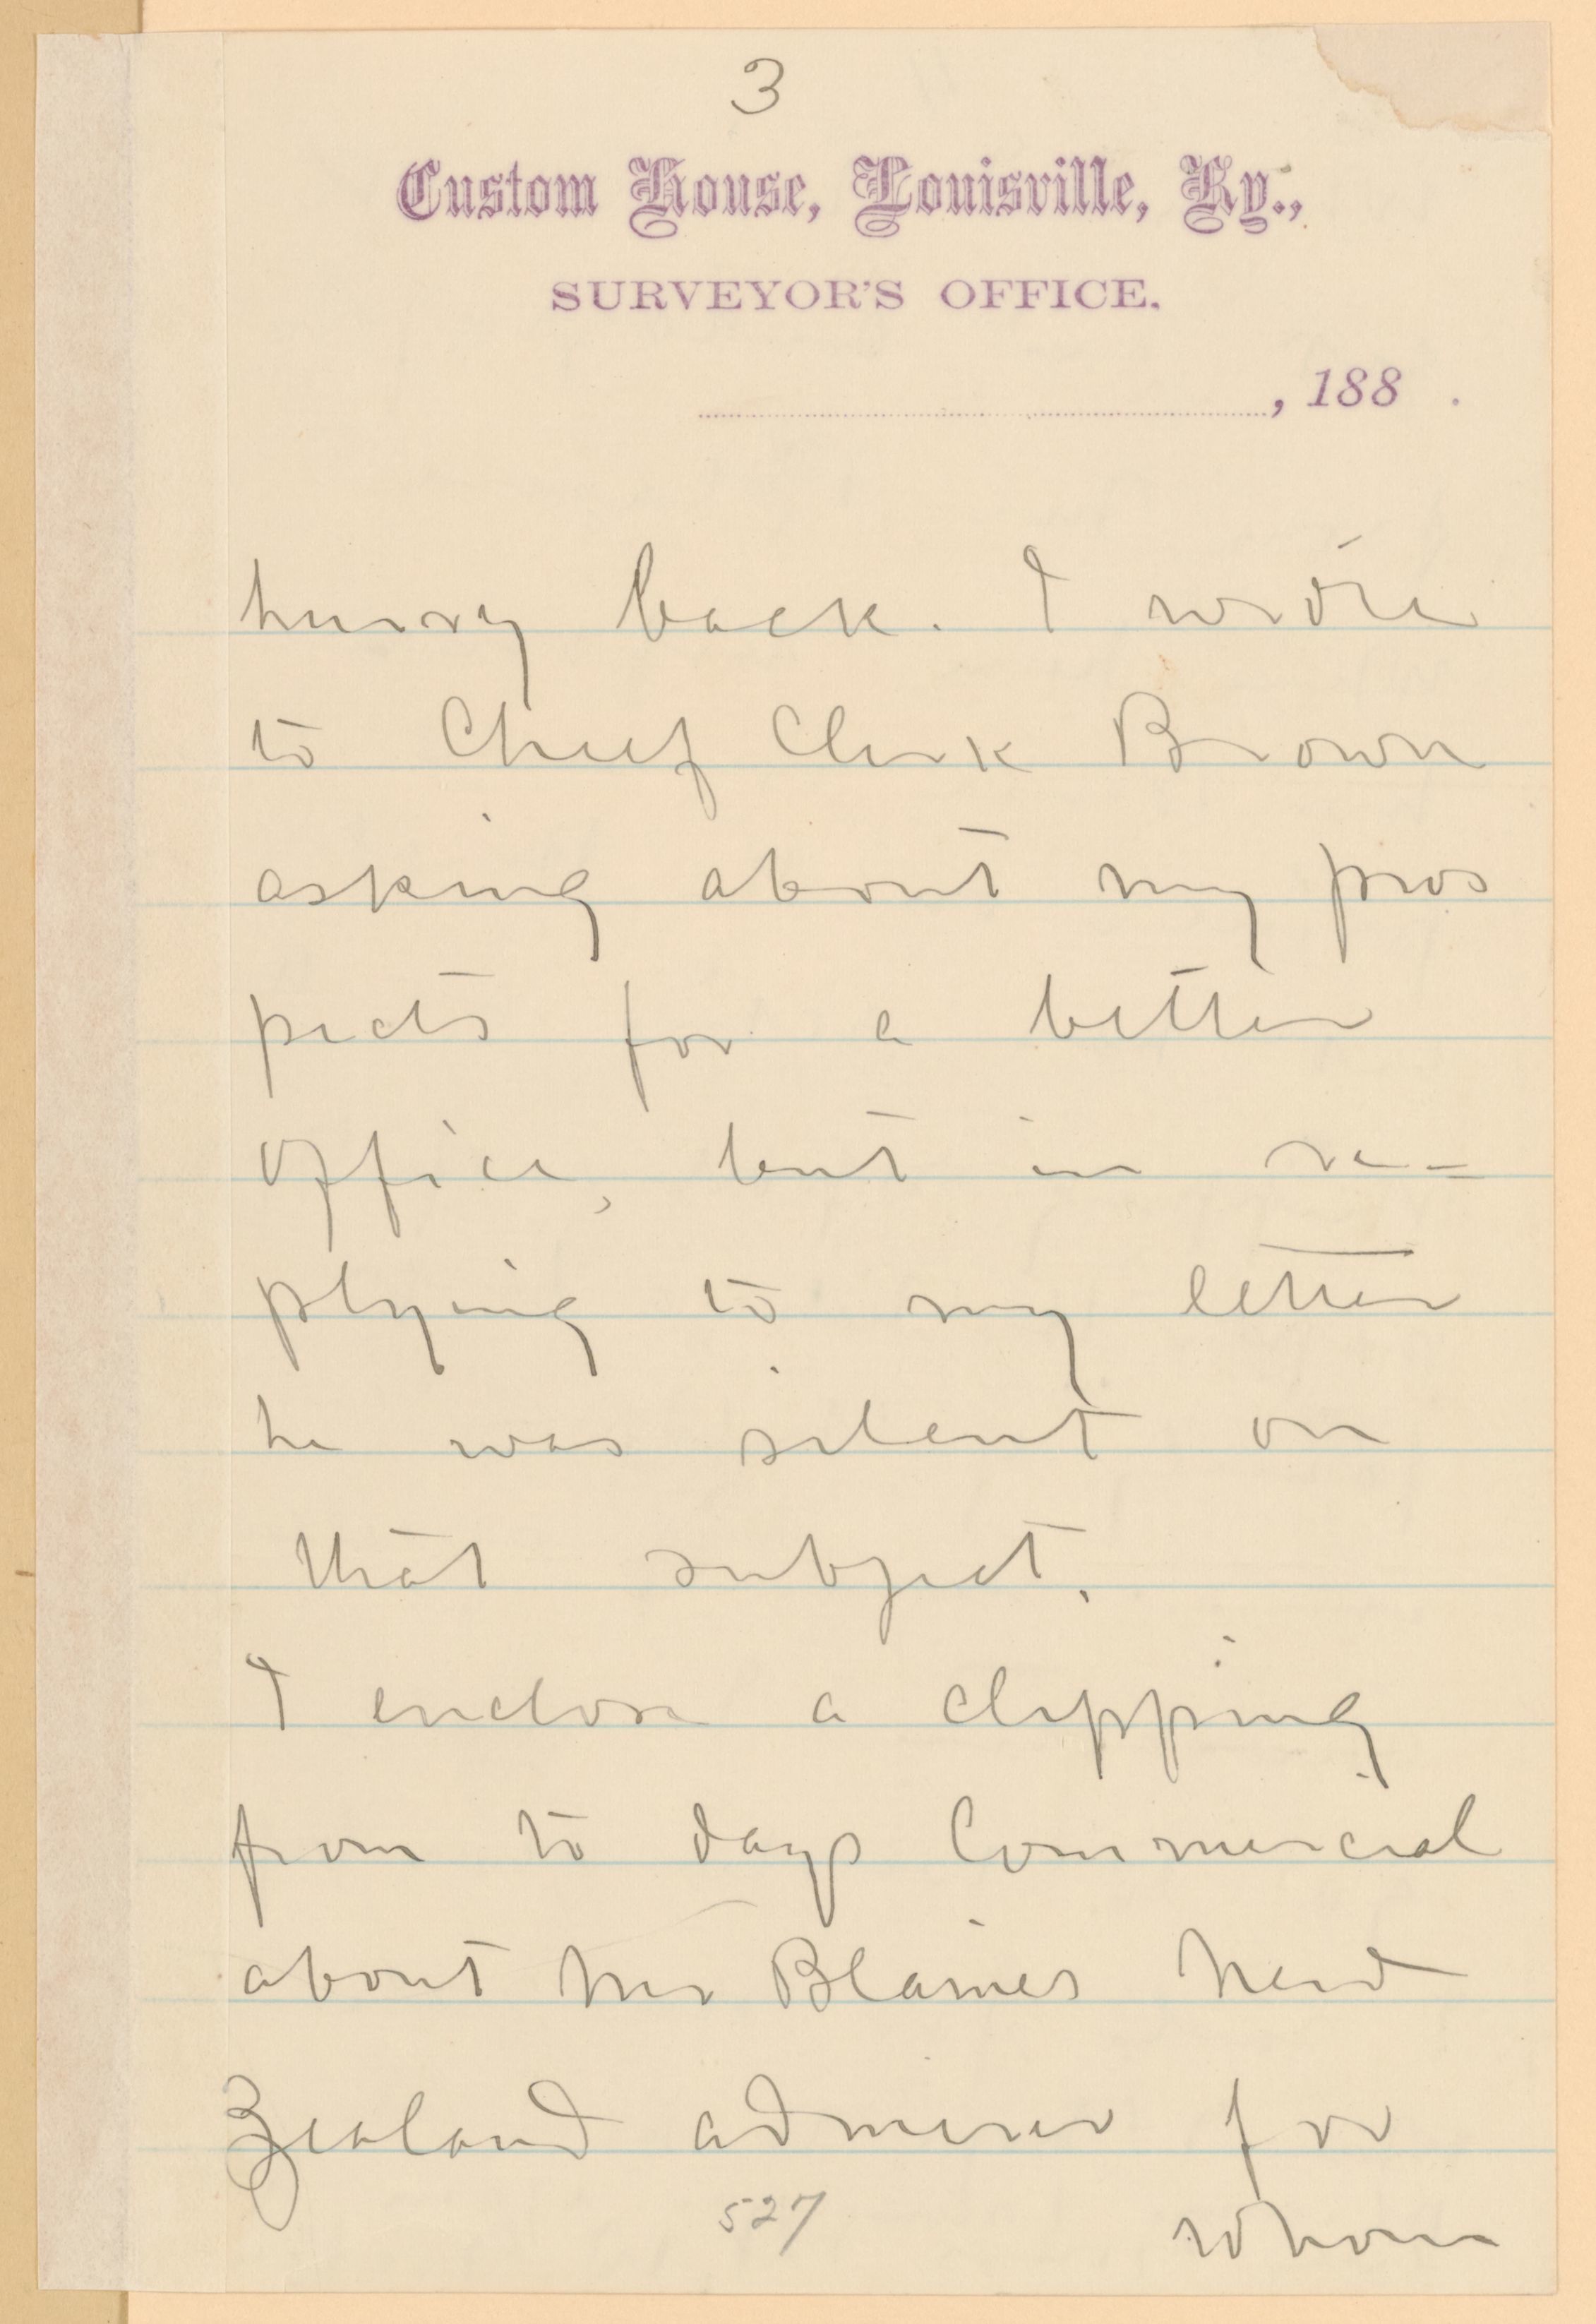 3
Custom House, Louisville, Ky.,
SURVEYOR'S OFFICE.
, 188 .
hurry back. I wrote
to Chief Clerk Brown
asking about my pros
pects for a better
office, but in re-
plying to my letter
he was silent on
that subject.
I enclose a clipping
from to days Commercial
about Mr Blaines New
Zealand admirer for
whom
527